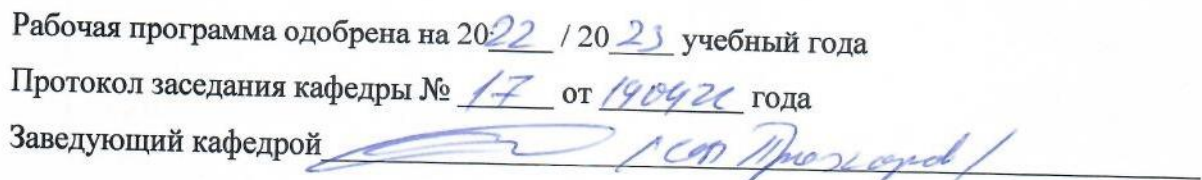 Рабочая программа одобрена на 2022 / 2023 учебный года
Протокол заседания кафедры № 17 от года
Заведующий кафедрой